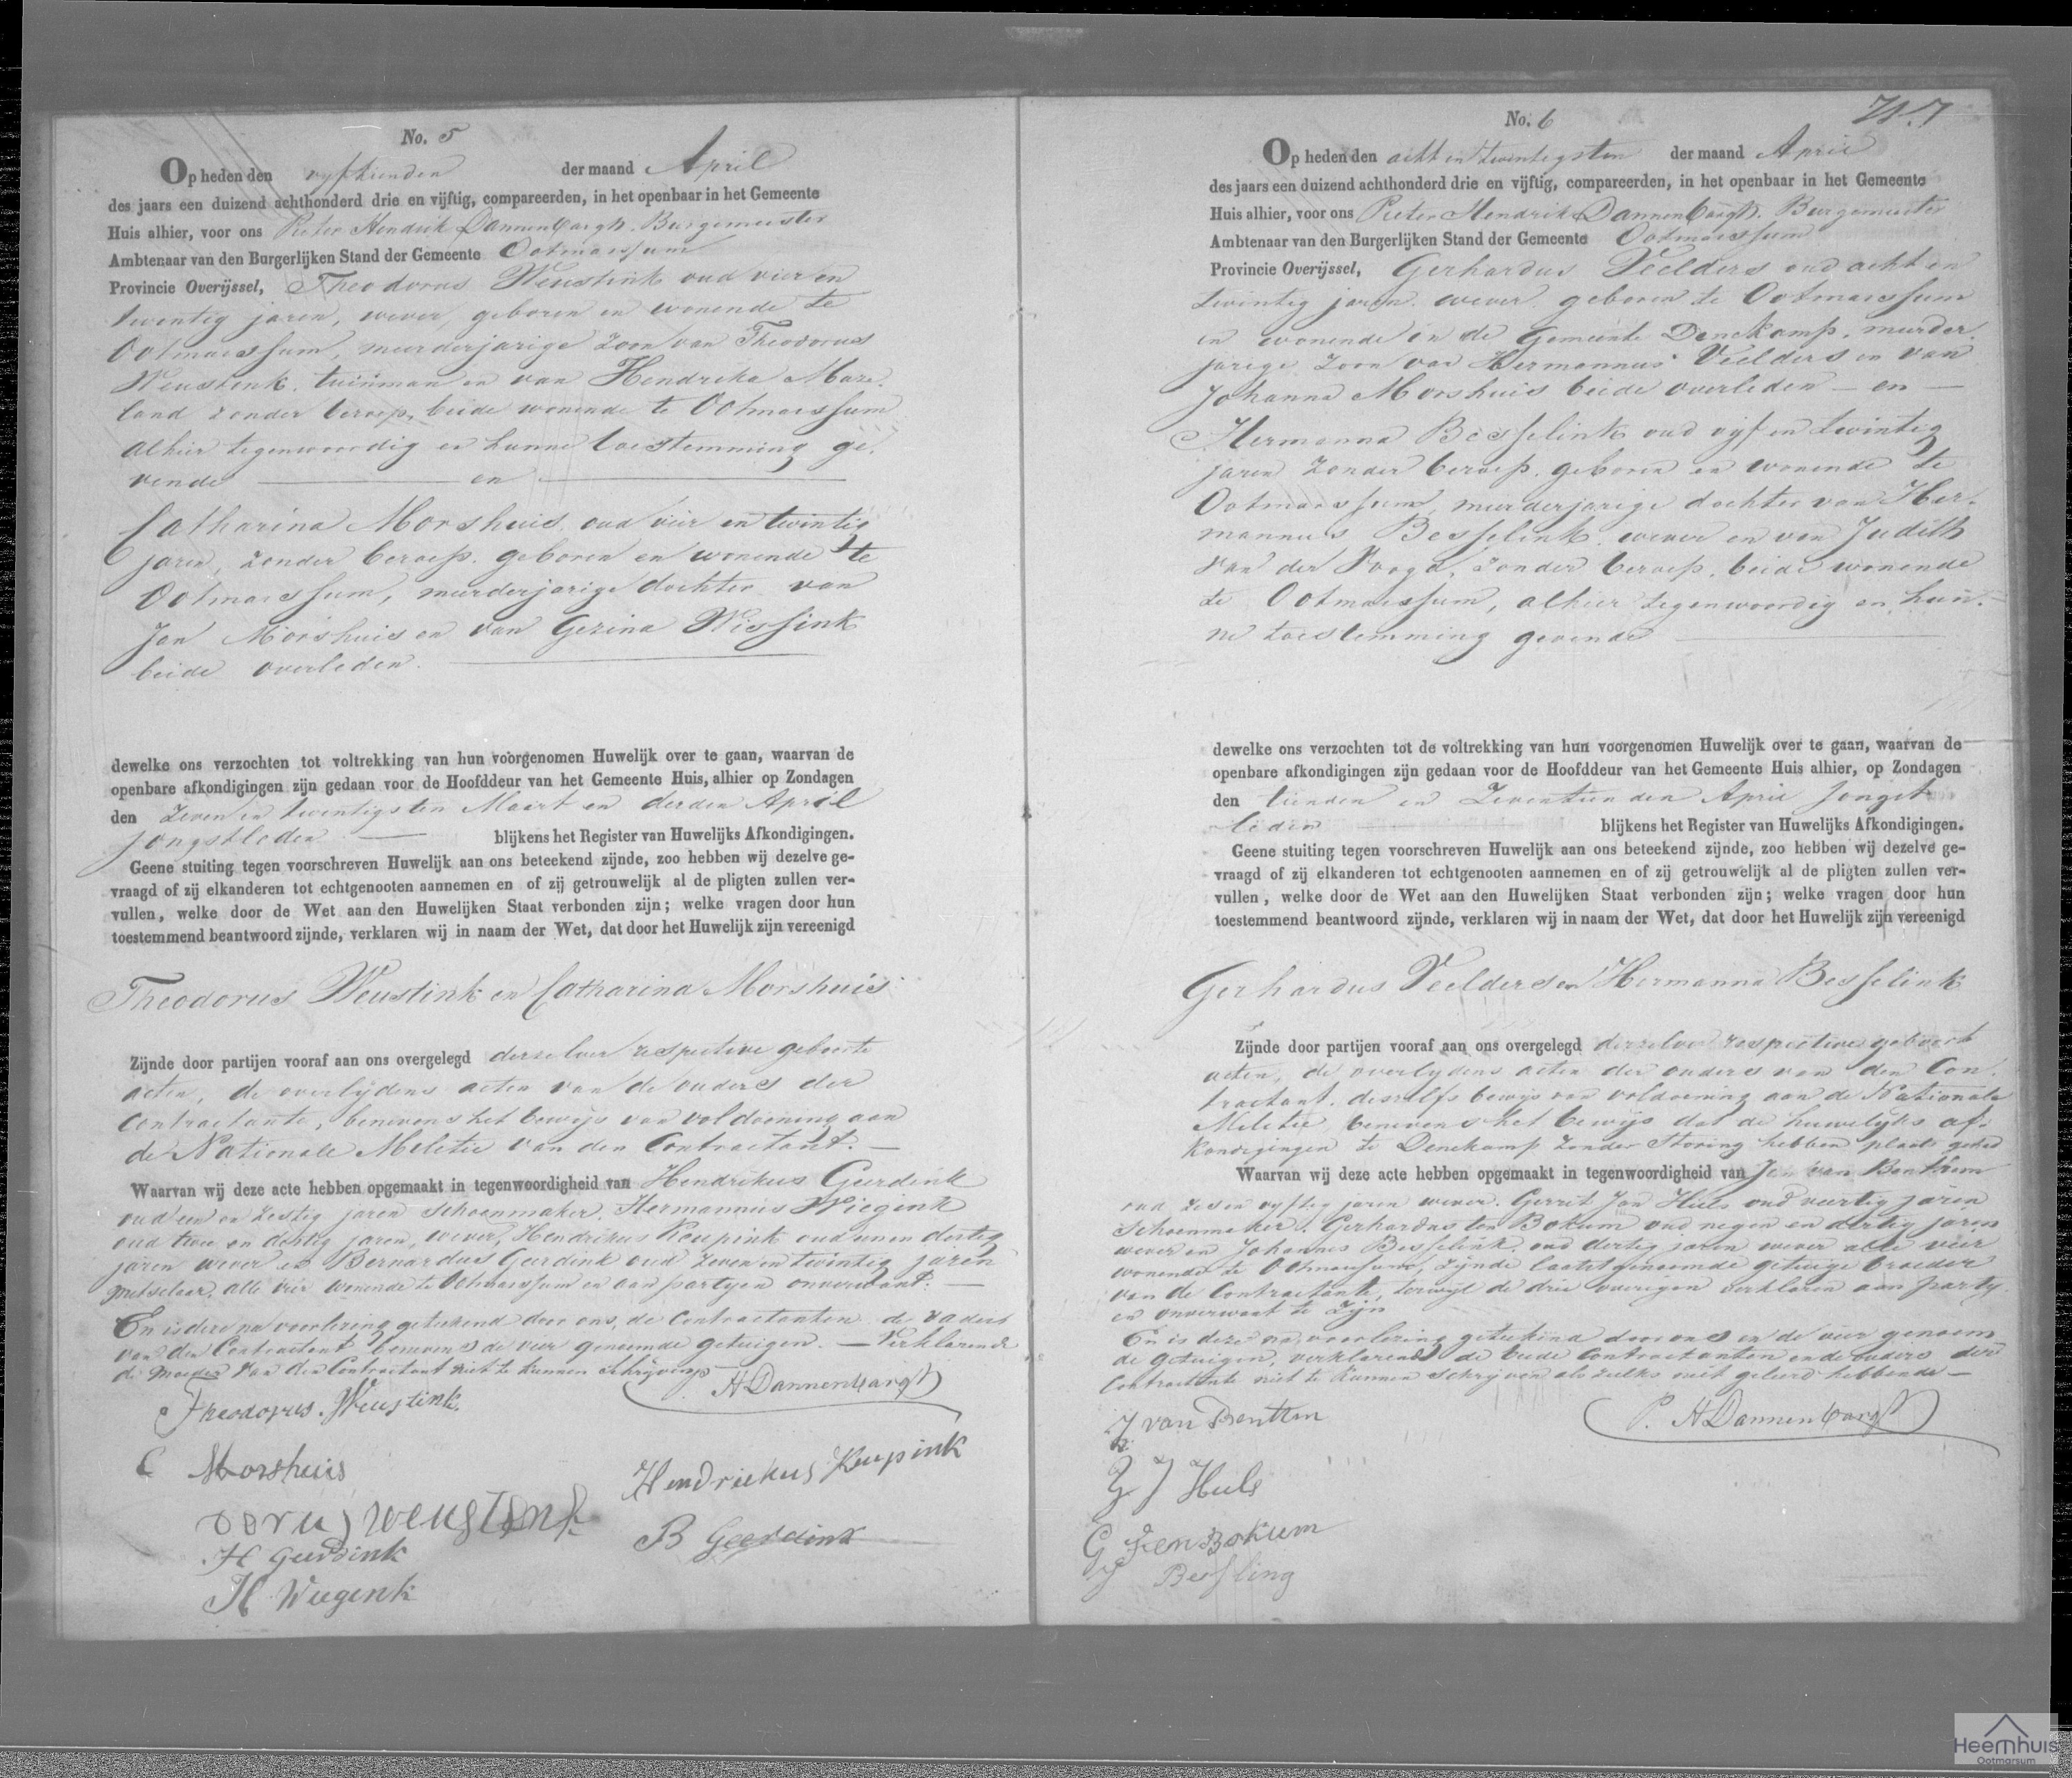 No. 5
Op heden den vyftienden der maand April
des jaars een duizend achthonderd drie en vijftig, compareerden, in het openbaar in het Gemeente
Huis alhier, voor ons Pieter Hendrik Dannenbargh, Burgemeester
Ambtenaar van den Burgerlijken Stand der Gemeente Ootmarssum
Provincie Overijssel, Theodorus Weustink oud vier en
twentig jaren, wever, geboren en wonende te
Ootmarssum, meerderjarige zoon van Theodorus
Weustink, tuinman en van Hendrika Maze-
land zonder beroep, beide wonende te Ootmarssum
alhier tegenwoordig en hunne toestemming ge-
vende — en —
Catharina Morshuis, oud vier en twintig
jaren, zonder beroep, geboren en wonende te
Ootmarssum, meerderjarige dochter van
Jan Morshuis en van Gezina Wissink
beide overleden.
dewelke ons verzochten tot voltrekking van hun voorgenomen Huwelijk over te gaan, waarvan de
openbare afkondigingen zijn gedaan voor de Hoofddeur van het Gemeente Huis, alhier op Zondagen
den Zeven en twentigsten Maart en derden April
jongstleden — blijkens het Register van Huwelijks Afkondigingen.
Geene stuiting tegen voorschreven Huwelijk aan ons beteekend zijnde, zoo hebben wij dezelve ge-
vraagd of zij elkanderen tot echtgenooten aannemen en of zij getrouwelijk al de pligten zullen ver-
vullen, welke door de Wet aan den Huwelijken Staat verbonden zijn; welke vragen door hun
toestemmend beantwoord zijnde, verklaren wij in naam der Wet, dat door het Huwelijk zijn vereenigd
Theodorus Weustink en Catharina Morshuis
Zijnde door partijen vooraf aan ons overgelegd derzelver respective geboorte
acten, de overlydens acten van de ouders der
Contractante, benevens het bewys van voldoening aan
de Nationale Meletie van den Contractant. —
Waarvan wij deze acte hebben opgemaakt in tegenwoordigheid van Hendrikus Geerdink
oud een en zestig jaren Schoenmaker, Hermannus Wiegink
oud twee en dertig jaren, wever, Hendrikus Keupink oud een en dertig
jaren wever en Bernardus Geerdink oud zeven en twintig jaren
metselaar, alle vier wonende te Ootmarssum en aan partyen onverwant: —
En is deze na voorlezing geteekend door ons, de Contractanten, de vader
van den Contractant benevens de vier genoemde getuigen. — Verklarende
de moeder van den Contractant niet te kunnen schryven
H Dannenbargh
Theodorus Weustink
C Morshuis
Hendriekus Keupink
Dorus Weustink
B Geerdink
H Geerdink
H Wiegenk
No. 6
Op heden den acht en twintigsten der maand April
des jaars een duizend achthonderd drie en vijftig, compareerden, in het openbaar in het Gemeente
Huis alhier, voor ons Pieter Hendrik Dannenbargh, Burgemeester
Ambtenaar van den Burgerlijken Stand der Gemeente Ootmarssum
Provincie Overijssel, Gerhardus Veelders oud acht en
twintig jaren, wever, geboren te Ootmarssum
en wonende in de Gemeente Denekamp, meerder-
jarige zoon van Hermannus Veelders en van
Johanna Morshuis beide overleden — en —
Hermanna Besselink oud vyf en twintig
jaren zonder beroep, geboren en wonende te
Ootmarssum, meerderjarige dochter van Her-
mannus Besselink, wever en van Judith
van der zonder beroep, beide wonende
te Ootmarssum, alhier tegenwoordig en hun-
ne toestemming gevende —
dewelke ons verzochten tot de voltrekking van hun voorgenomen Huwelijk over te gaan, waarvan de
openbare afkondigingen zijn gedaan voor de Hoofddeur van het Gemeente Huis alhier, op Zondagen
den tienden en Zeventienden April jongst
leden — blijkens het Register van Huwelijks Afkondigingen.
Geene stuiting tegen voorschreven Huwelijk aan ons beteekend zijnde, zoo hebben wij dezelve ge-
vraagd of zij elkanderen tot echtgenooten aannemen en of zij getrouwelijk al de pligten zullen ver-
vullen, welke door de Wet aan den Huwelijken Staat verbonden zijn; welke vragen door hun
toestemmend beantwoord zijnde, verklaren wij in naam der Wet, dat door het Huwelijk zijn vereenigd
Gerhardus Veelders en Hermanna Besselink
Zijnde door partijen vooraf aan ons overgelegd derzelver respective geboort
acten, de overlydens acten der ouders van den Con-
tractant, deszelfs bewys van voldoening aan de Nationale
Militie, benevens het bewys dat de huwelyks af-
kondigingen te Denekamp zonder storing hebben plaats gehad
Waarvan wij deze acte hebben opgemaakt in tegenwoordigheid van Jan van Benthem
oud zes en vyftig jaren wever, Gerrit Jan Huls oud veertig jaren
Schoenmaker, Gerhardus ten Bokum oud negen en dertig jaren
wever en Johannes Besselink, oud dertig jaren wever alle vier
wonende te Ootmarssum, zynde laatstgenoemde getuige broeder
van de Contractante, terwyl de drie overigen verklaren aan party-
en onverwant te zyn
En is deze na voorlezing geteekend door ons en de vier genoem-
de getuigen, verklarende de beide Contractanten en de ouders der
Contractante niet te kunnen schryven als zulks niet geleerd hebbende —
J van Benttem
P. H Dannenbargh
G J Huls
G Ten Bokum
Bessling
Heemhuis
Ootmarsum